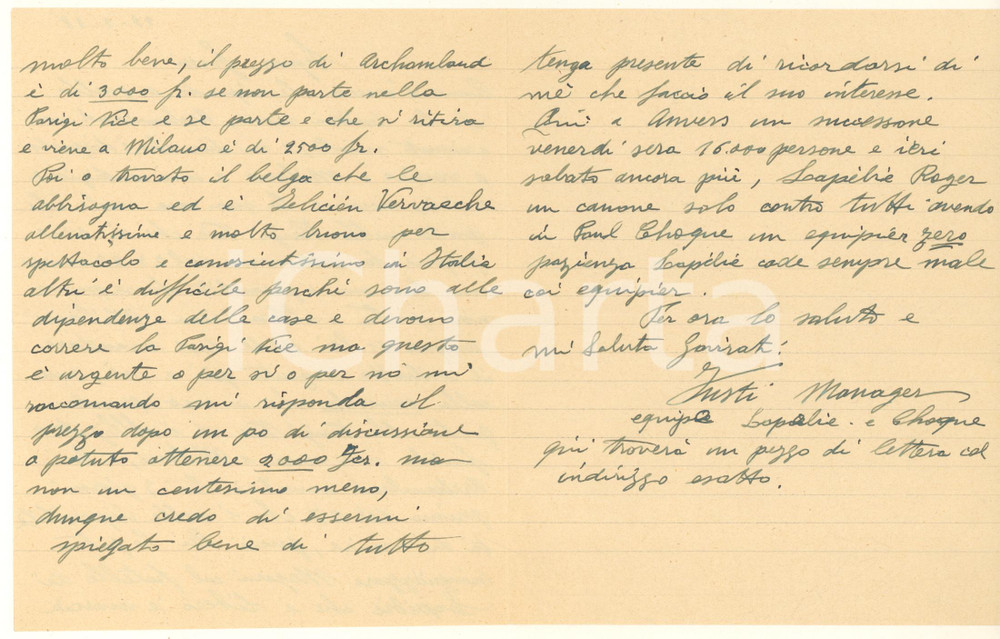 molto bene, il prezzo di Archambaud
è di 3000 fr. se non parte nella
Parigi Nice e se parte e che si ritira
e viene a Milano è di 2500 fr.
Poi o trovato il belga che le
abbisogna ed è Felicien Vervaecke
allenatissimo e molto buono per
spettacolo e conosciutissimo in Italia
altri è difficile perchè sono alle
dipendenze delle case e devono
correre la Parigi Nice ma questo
è urgente o per si o per no mi
raccomando mi risponda il
prezzo dopo un po di discussione
o potuto ottenere 2000 fr. ma
non un centesimo meno,
dunque credo di essermi
spiegato bene di tutto
tenga presente di ricordarsi di
mè che faccio il suo interesse.
Qui a Anvers un successone
venerdi sera 16.000 persone e ieri
sabato ancora più, Lapébie Roger
un canone solo contro tutti avendo
in Paul Choque un equipier zero
pazienza Lapébie cade sempre male
coi equipier.
Per ora lo saluto e
mi Saluta
Giusti Manager
equipe Lapebie e Choque
qui troverà un pezzo di lettera col
indirizzo esatto.
iCharta